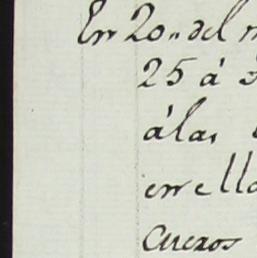 En 20,, del
25 á
álas
en ella
cueros